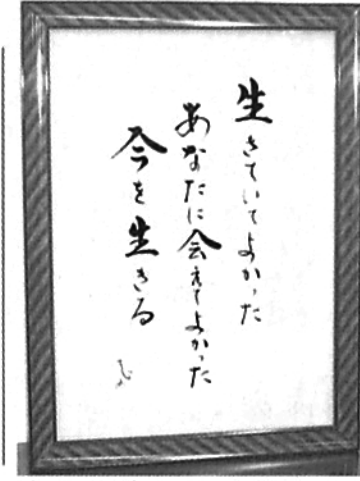 生きていてよかった
あなたに会えてよかった
今を生きる